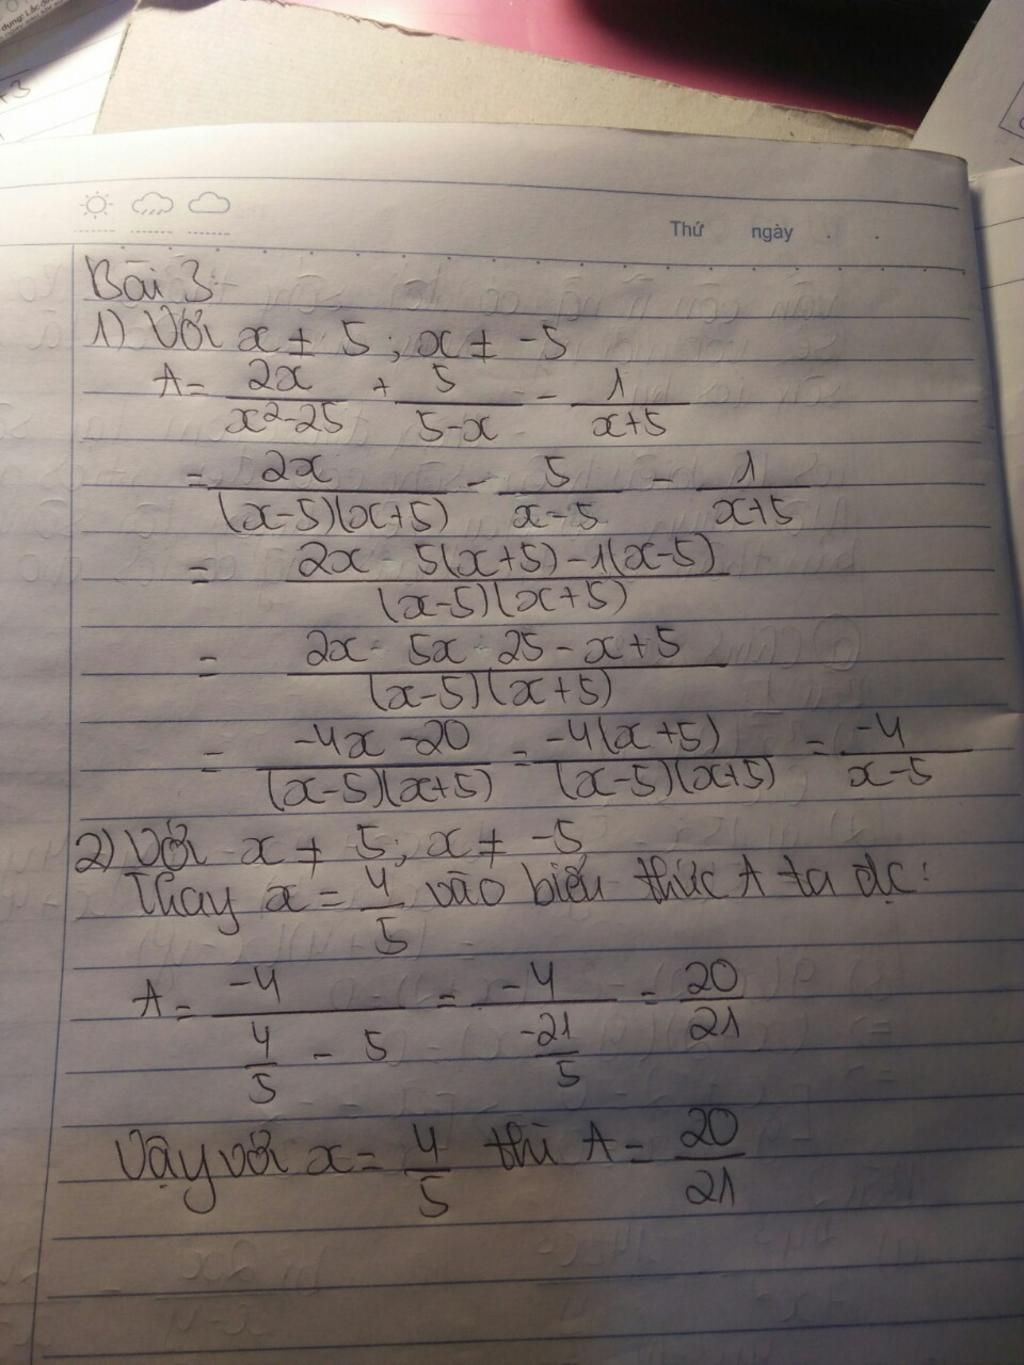 Thứ ngày
Bài 3:
1) Với x ≠ 5 ; x ≠ -5
A = 2x/(x²-25) + 5/(5-x) - 1/(x+5)
= 2x/((x-5)(x+5)) - 5/(x-5) - 1/(x+5)
= (2x - 5(x+5) - 1(x-5))/((x-5)(x+5))
= (2x - 5x - 25 - x + 5)/((x-5)(x+5))
= (-4x - 20)/((x-5)(x+5)) = -4(x+5)/((x-5)(x+5)) = -4/(x-5)
2) Với x ≠ 5 ; x ≠ -5
Thay x = 4/5 vào biểu thức A ta đc :
A = -4/(4/5 - 5) = -4/(-21/5) = 20/21
Vậy với x = 4/5 thì A = 20/21